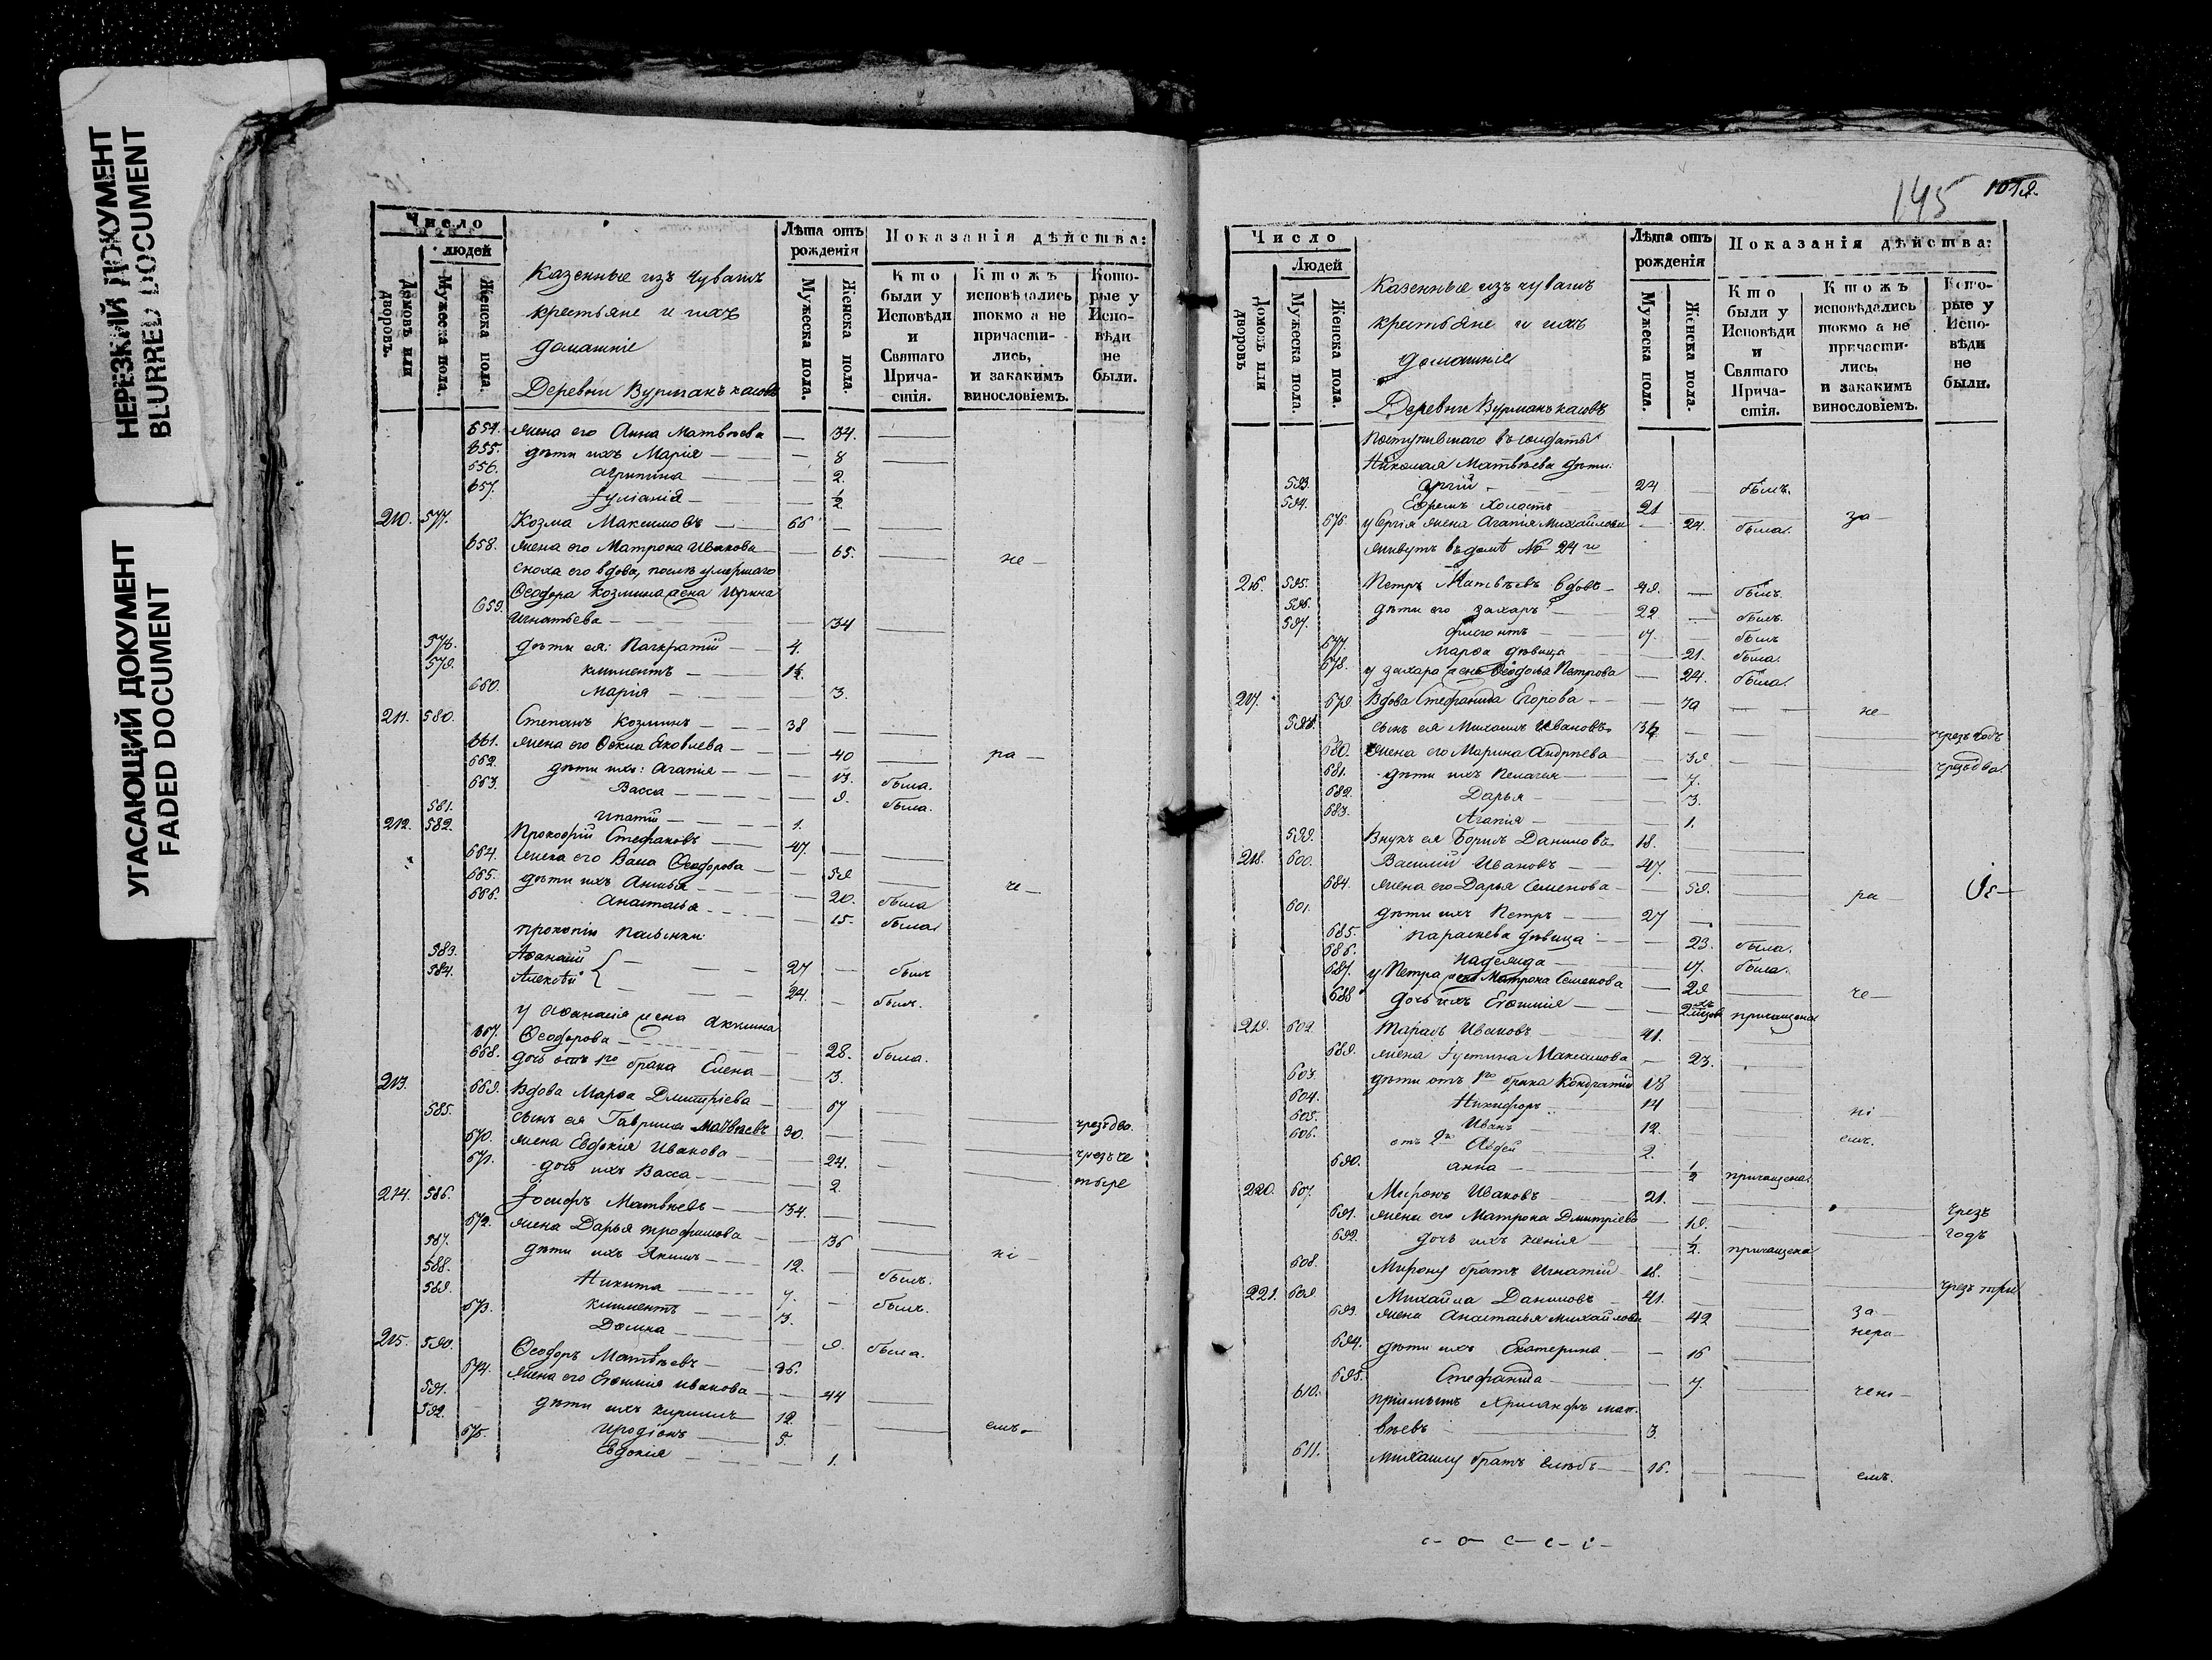 НЕРЕЗКИЙ ДОКУМЕНТ
BLURRED DOCUMENT
УГАСАЮЩИЙ ДОКУМЕНТ
FADED DOCUMENT
Число
людей
Домовъ или дворовъ.
Мужеска пола.
Женска пола.
Казенные изъ Чувашъ
крестьяне и ихъ
домашніе
Деревни Вурманъ касовъ
Лѣта отъ рожденія
Мужеска пола.
Женска пола.
Показанія дѣйства:
Кто были у Исповѣди и Святаго Причастія.
Ктожъ исповѣдались токмо а не причастились, и закакимъ винословіемъ.
Которые у Исповѣди не были.
654. жена его Анна Матвѣева — 34.
655. дѣти ихъ Марія — 8
656. Агрипина 2.
657. Іуліанія — ½
210. 577. Козма Максимовъ — 66
658. жена его Матрона Иванова — 65. не —
сноха его вдова, послѣ умершаго
Ѳеодора Козмина жена Ирина
659. Игнатьева — 34
578. дѣти ея: Панкратій — 4.
579. Климентъ — 1½.
660. Марія — 3.
211. 580. Степанъ Козминъ — 38
661. жена его Ѳекла Яковлева — 40 ра —
662. дѣти ихъ: Агапія — 13. была.
663. Васса — 9. была.
581. Ипатій — 1.
212. 582. Прокофій Стефановъ — 47.
664. жена его Васса Ѳеодорова — 59
665. дѣти ихъ Анисья — 20. была че —
666. Анастасья — 15. была
Прокопія пасынки:
583. Аѳанасій 27 — былъ
584. Алексѣй 24. — былъ.
у Аѳанасія жена Акилина
667. Ѳеодорова — 28. была.
668. дочь отъ 1го брака Елена — 3.
213. 669. Вдова Марѳа Димитріева — 67
585. сынъ ея Гаврилъ Матвѣевъ 30. — чрезъ два.
670. жена Евдокія Иванова — 24. чрезъ че
671. дочь ихъ Васса — 2. тыре
214. 586. Іосифъ Матвѣевъ — 34.
672. жена Дарья Трофимова — 36
587. дѣти ихъ Якимъ — 12. ні —
588. Никита 7. — былъ.
589. Климентъ — 3. былъ.
673. Домна — 9. была.
215. 590. Ѳеодоръ Матвѣевъ — 36.
674. жена его Евѳимія Иванова — 44
591. дѣти ихъ Кирилъ 12.
592. Иродіонъ 5. емъ.
675. Евдокія — 1.
145 1019.
Число
Людей
Домовъ или дворовъ
Мужеска пола.
Женска пола.
Казенные изъ чувашъ
крестьяне и ихъ
домашніе
Деревни Вурманъ касовъ
Лѣта отъ рожденія
Мужеска пола.
Женска пола.
Показанія дѣйства:
Кто были у Исповѣди и Святаго Причастія.
Ктожъ исповѣдались токмо а не причастились, и закакимъ винословіемъ.
Которые у Исповѣди не были.
Поступившаго въ солдаты
Николая Матвѣева дѣти:
593. Сергій 24 — былъ.
594. Ефремъ холостъ 21 за —
676. у Сергія жена Агапія Михайлова — 24. была.
живутъ въ домѣ № 24 и
216. 595. Петръ Матвѣевъ вдовъ — 49. — былъ.
596. дѣти его Захаръ — 22 — былъ.
597. 17. — былъ
677. Марѳа дѣвица — 21. была.
678. у Захара жена Ѳеодосья Петрова — 24. была.
217. 679 Вдова Стефанида Егорова — 70 не —
598. сынъ ея Михаилъ Ивановъ чрезъ годъ
680. жена его Марина Андрѣева — 39 чрезъ два
681. дѣти ихъ Пелагея — 7.
682. Дарья — 3.
683. Агапія — 1.
599. Внукъ ея Борисъ Даниловъ. 18.
218. 600. Василій Ивановъ — 47.
684. жена его Дарья Семенова — 59. ра —
601. дѣти ихъ Петръ — 27 —
685. Параскева дѣвица — 23. была.
686. Надежда — 17. была.
687. у Петра жена Матрона Семенова 29 че —
688 дочь ихъ Евѳимія — причащена
219. 602. Тарасъ Ивановъ 41.
689. жена Іустина Максимова — 23.
603. дѣти отъ 1го брака Кондратій 18
604. Никифоръ 14 ні
605. Иванъ 12. емъ.
606. отъ 2го Авдей 2.
690. Анна ½ причащена.
220. 607. Миронъ Ивановъ 21.
691. жена его Матрона Дмитріева 19. — чрезъ
692. дочь ихъ Ксенія ½. причащена годъ
608. Мирону братъ Игнатій 18.
221. 609. Михайла Даниловъ — 41. чрезъ три
693. жена Анастасья Михайлова 42 за —
694. дѣти ихъ Екатерина — 16 нера —
695. Стефанида 7. чені —
610. Пріимышъ Хрисанфъ Мат-
вѣевъ 3.
611. Михаилу братъ Глѣбъ — 16. емъ.
с - о - с - с - і -